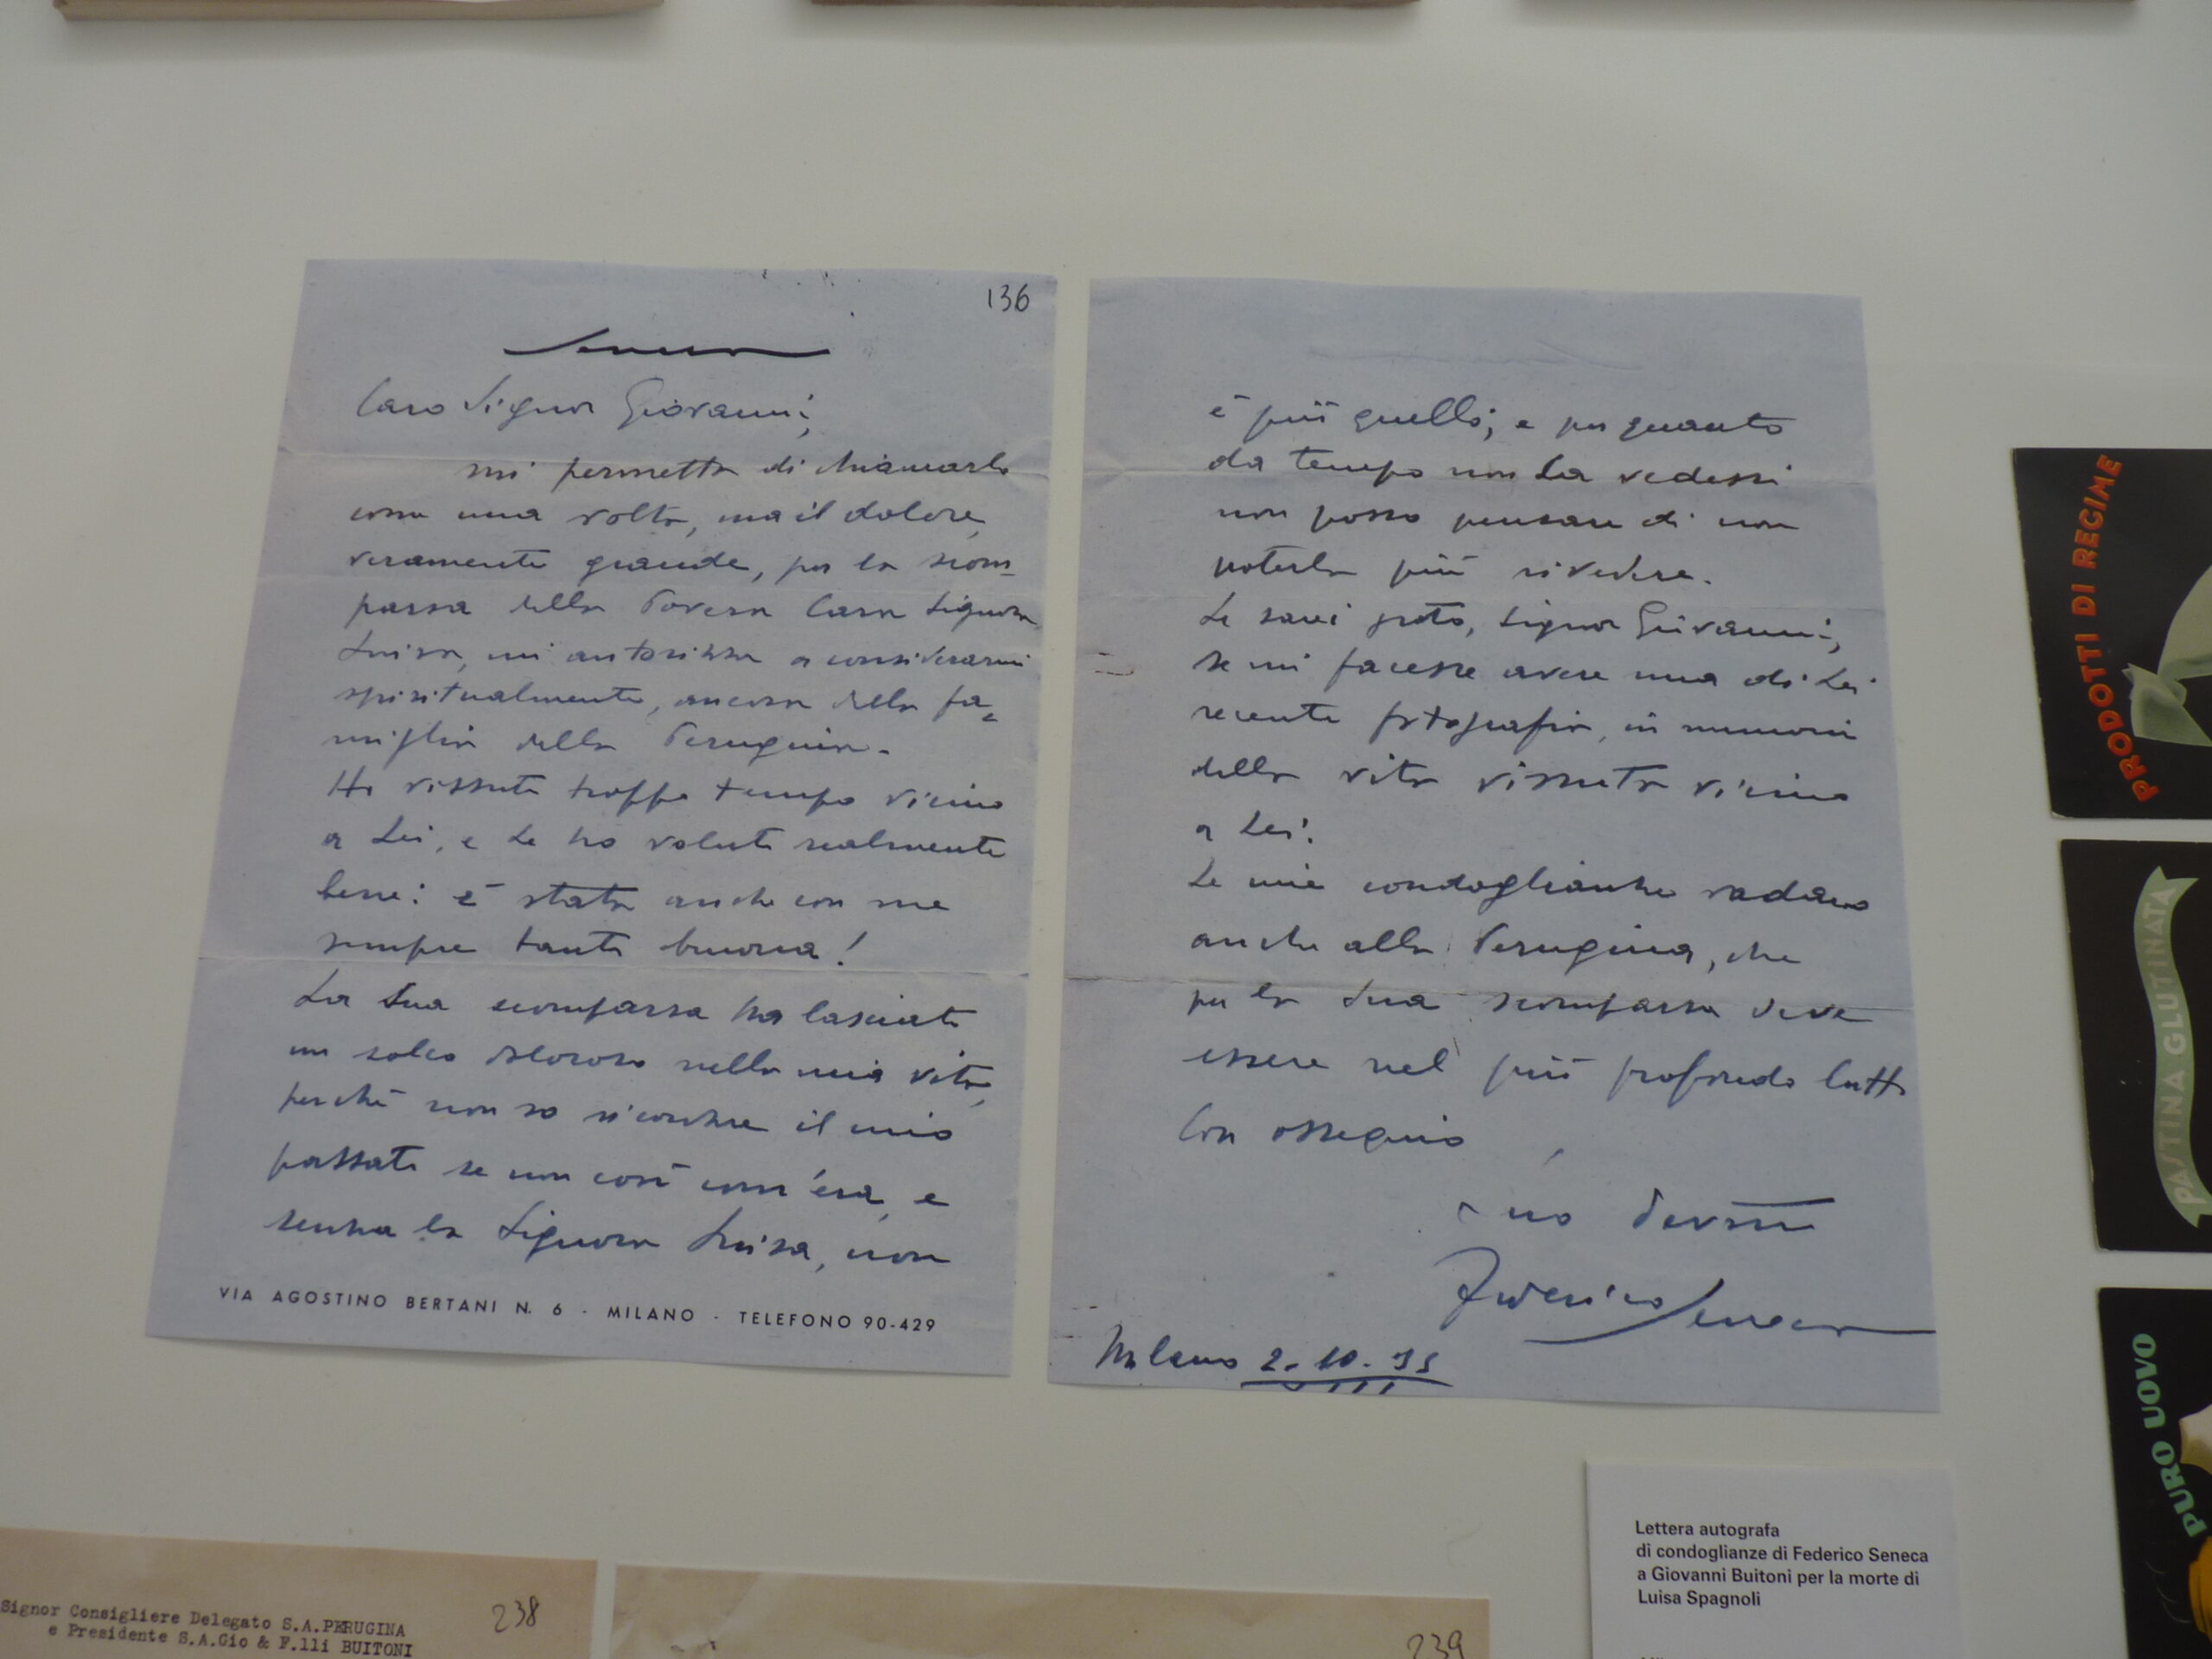 136
Seneca
Caro Signor Giovanni,
mi permetta di chiamarlo
come una volta, ma il dolore,
veramente grande, per la scom-
parsa della Povera Cara Signora
Luisa, mi autorizza a considerarmi
spiritualmente, ancora della fa-
miglia della Perugina.
Ho vissuto troppo tempo vicino
a Lei, e Le ho voluto realmente
bene: è stata anche con me
sempre tanto buona!
La Sua scomparsa ha lasciato
un solco doloroso nella mia vita,
perchè non so ricordare il mio
passato se non così com'era, e
senza la Signora Luisa, non
VIA AGOSTINO BERTANI N. 6 - MILANO - TELEFONO 90-429
è più quello; e per quanto
da tempo non La vedessi
non posso pensare di non
poterla più rivedere.
Le sarei grato, Signor Giovanni,
se mi facesse avere una di Lei
recente fotografia, in memoria
della vita vissuta vicino
a Lei.
Le mie condoglianze vadano
anche alla Perugina, che
per la Sua scomparsa deve
essere nel più profondo lutto
Con ossequio
suo Dev.mo
Federico Seneca
Milano 2-10-35
XIII
PRODOTTI DI REGIME
PASTINA GLUTINATA
PURO UOVO
Lettera autografa
di condoglianze di Federico Seneca
a Giovanni Buitoni per la morte di
Luisa Spagnoli
Signor Consigliere Delegato S.A.PERUGINA
e Presidente S.A.Gio & F.lli BUITONI
238
239